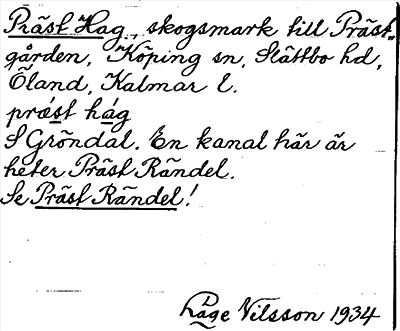 Präst Hag, skogsmark till Präst-
gården, Köping sn, Slättbo hd,
Öland, Kalmar l.
præst hág
S Gröndal. En kanal här är
heter Präst Rändel.
Se Präst Rändel!
Låge Nilsson 1934